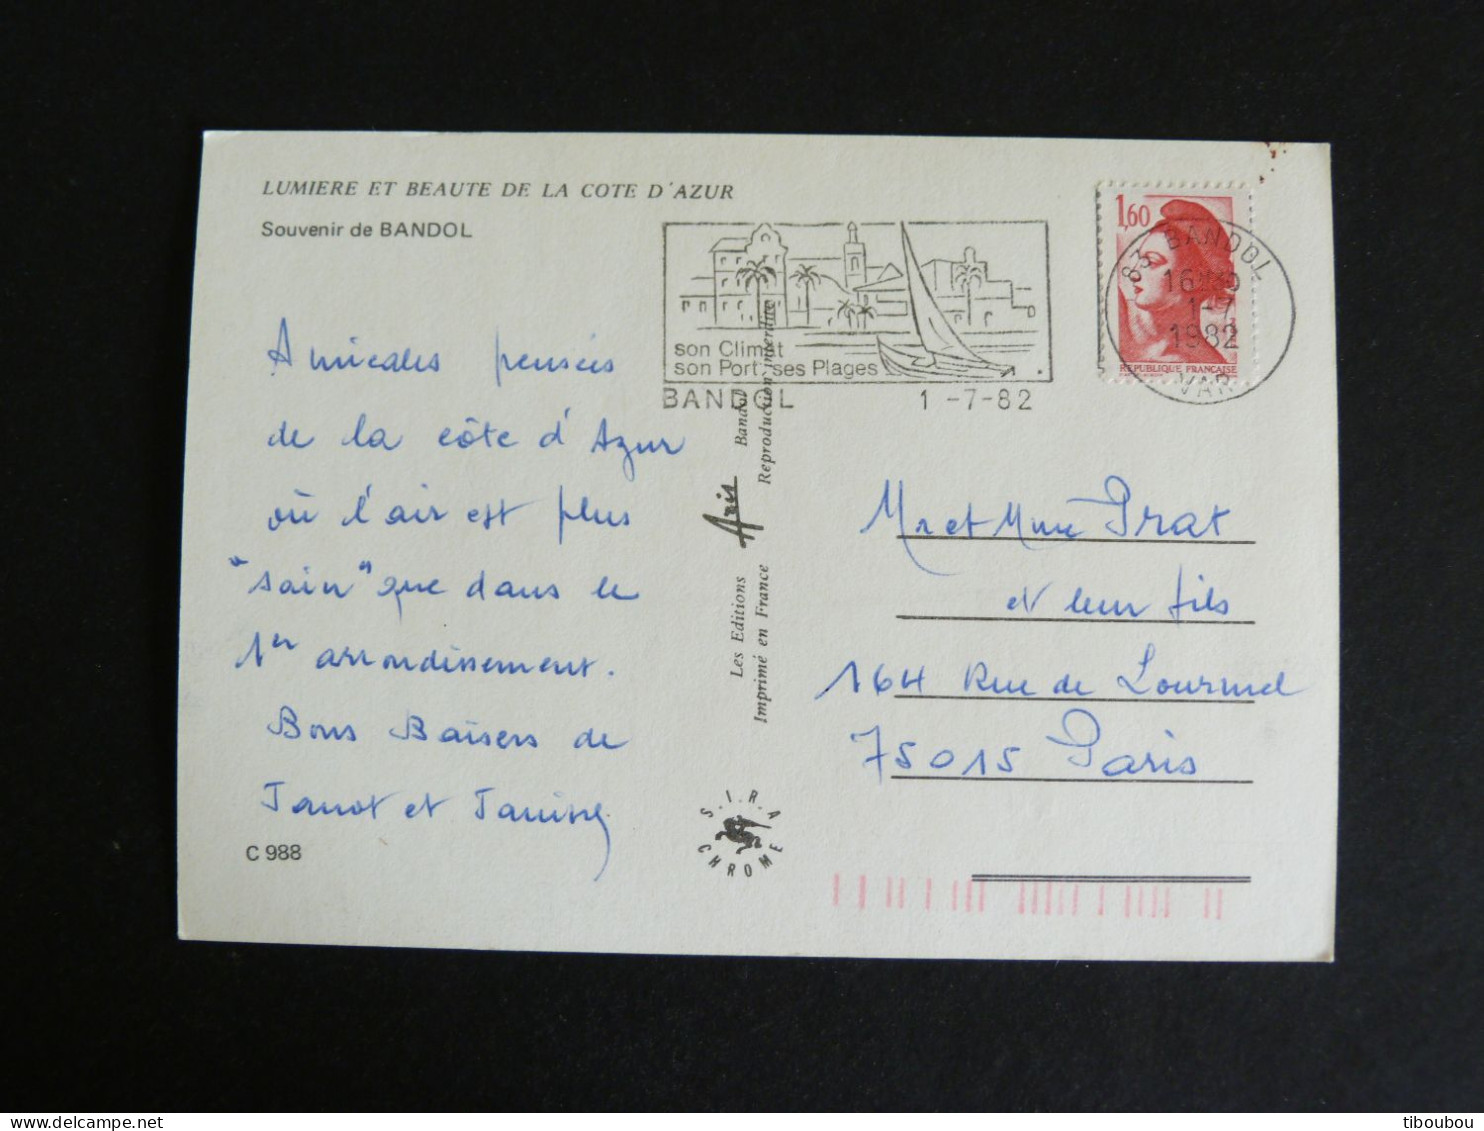 LUMIERE ET BEAUTE DE LA COTE D'AZUR
Souvenir de BANDOL
Amicales pensées
de la côte d'Azur
où l'air est plus
"sain" que dans le
1er arrondissement.
Bons Baisers de
Janot et
C 988
son Climat
son Port, ses Plages
BANDOL 1-7-82
Les Editions Aris Bandol
Imprimé en France Reproduction interdite
S.I.R.A
CHROME
1,60
REPUBLIQUE FRANCAISE
83 BANDOL
1-7
1982
VAR
Mr et Mme Prat
et leur fils
164 Rue de Lourmel
75015 Paris
tiboubou